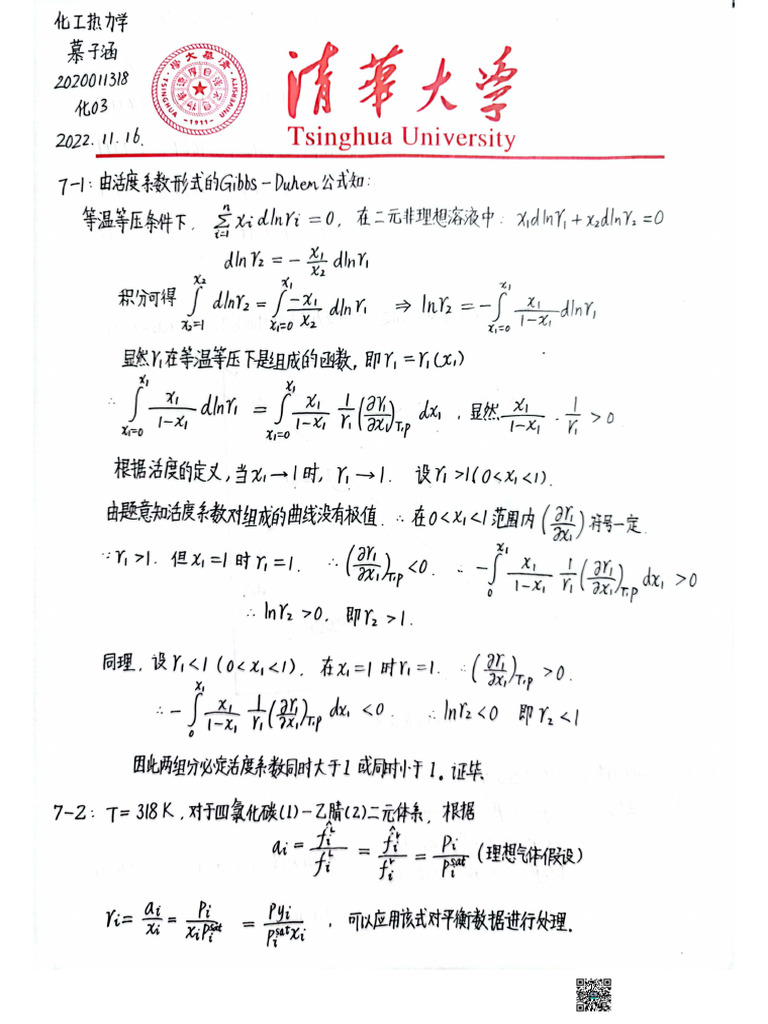 化工热力学
慕子涵
2020011318
化03
2022.11.16.
清华大学
Tsinghua University
清华大学
TSINGHUA UNIVERSITY
-1911-
自强不息
厚德载物
7-1:由活度系数形式的Gibbs-Duhem公式知:
等温等压条件下, ∑_{i=1}^{n} x_i dlnγ_i = 0, 在二元非理想溶液中: x₁dlnγ₁+x₂dlnγ₂=0
dlnγ₂ = - x₁/x₂ dlnγ₁
积分可得 ∫_{x₂=1}^{x₂} dlnγ₂ = ∫_{x₁=0}^{x₁} -x₁/x₂ dlnγ₁ ⇒ lnγ₂ = -∫_{x₁=0}^{x₁} x₁/(1-x₁) dlnγ₁
显然γ₁在等温等压下是组成的函数,即γ₁=γ₁(x₁)
∴ ∫_{x₁=0}^{x₁} x₁/(1-x₁) dlnγ₁ = ∫_{x₁=0}^{x₁} x₁/(1-x₁) 1/γ₁ (∂γ₁/∂x₁)_{T,p} dx₁ , 显然 x₁/(1-x₁) · 1/γ₁ > 0
根据活度的定义,当x₁→1时, γ₁→1. 设γ₁>1(0<x₁<1).
由题意知活度系数对组成的曲线没有极值. ∴在0<x₁<1范围内 (∂γ₁/∂x₁) 符号一定.
∵γ₁>1. 但x₁=1时γ₁=1. ∴(∂γ₁/∂x₁)_{T,p}<0. ∴ -∫_{0}^{x₁} x₁/(1-x₁) 1/γ₁ (∂γ₁/∂x₁)_{T,p} dx₁ > 0
∴ lnγ₂>0, 即γ₂>1.
同理, 设γ₁<1 (0<x₁<1), 在x₁=1时γ₁=1. ∴(∂γ₁/∂x₁)_{T,p}>0.
∴ -∫_{0}^{x₁} x₁/(1-x₁) 1/γ₁ (∂γ₁/∂x₁)_{T,p} dx₁ < 0. ∴ lnγ₂<0 即γ₂<1
因此两组分必定活度系数同时大于1或同时小于1。证毕.
7-2: T=318K,对于四氯化碳(1)-乙腈(2)二元体系, 根据
a_i = f̂_i^L/f_i^L = f̂_i^V/f_i^V = p_i/p_i^sat (理想气体假设)
γ_i = a_i/x_i = p_i/(x_i p_i^sat) = p y_i/(p_i^sat x_i) , 可以应用该式对平衡数据进行处理.